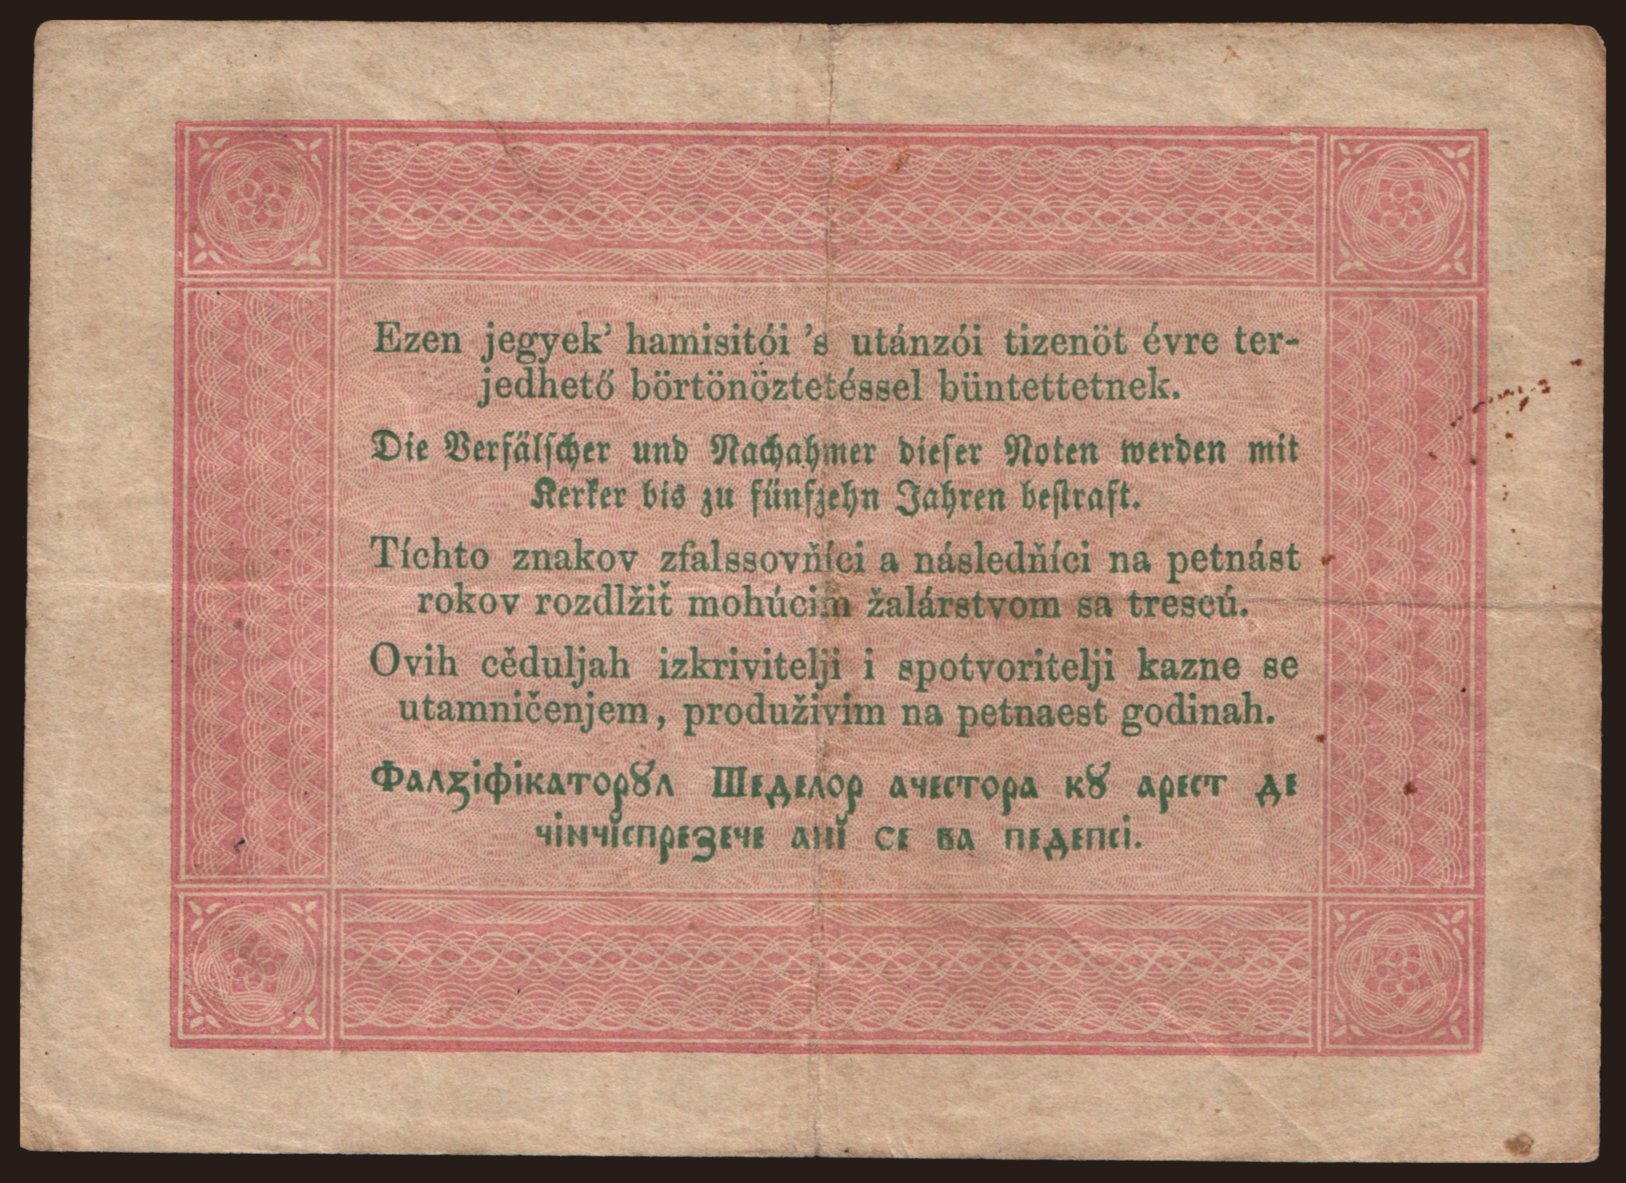 Ezen jegyek’ hamisitói ’s utánzói tizenöt évre ter-
jedhető börtönöztetéssel büntettetnek.
Die Verfälscher und Nachahmer dieser Noten werden mit
Kerker bis zu fünfzehn Jahren bestraft.
Tíchto znakov zfalssovňíci a následňíci na petnást
rokov rozdlžiť mohúcim žalárstvom sa trescú.
Ovih cěduljah izkrivitelji i spotvoritelji kazne se
utamničenjem, produživim na petnaest godinah.
Фалꙁіфікаторꙋл Шеделор ачестора кꙋ арест де
чінчіспрезече анĭ се ва педепсі.